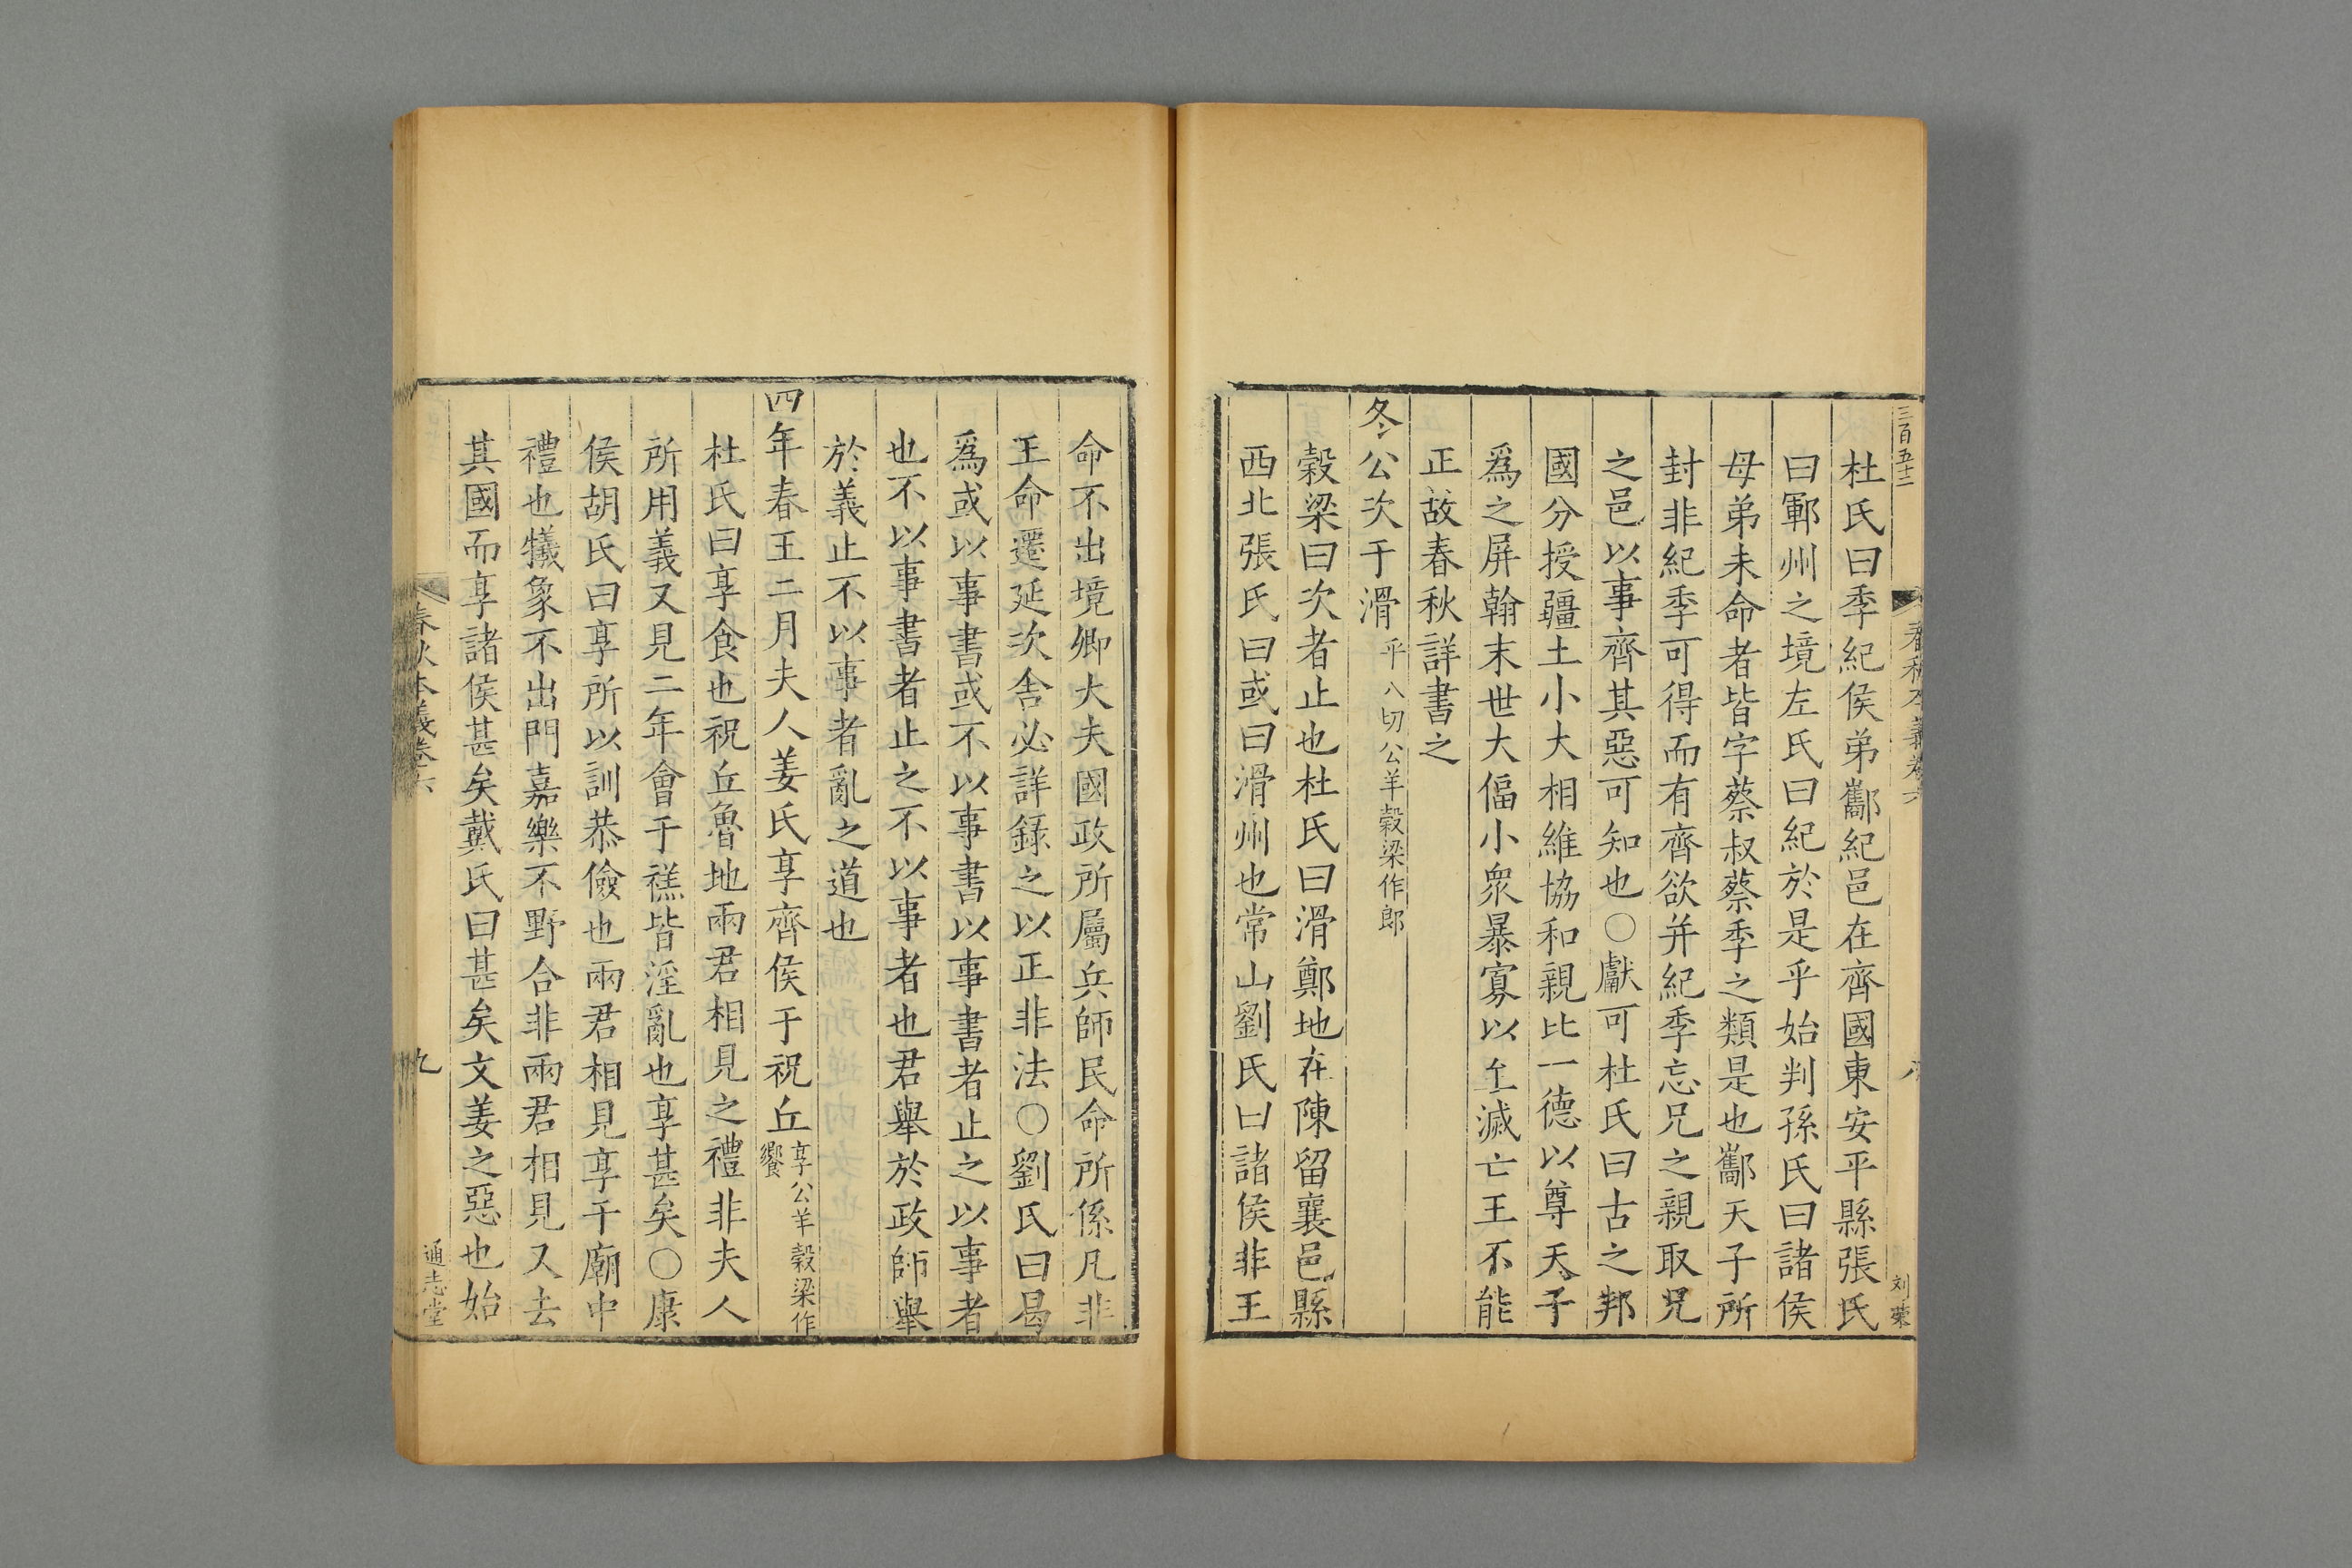 三百五十二
春秋本義卷六
八
刘榮
杜氏曰季紀侯弟酅紀邑在齊國東安平縣張氏
曰鄆州之境左氏曰紀於是乎始判孫氏曰諸侯
母弟未命者皆字蔡叔蔡季之類是也酅天子所
封非紀季可得而有齊欲并紀季忘兄之親取兄
之邑以事齊其惡可知也○獻可杜氏曰古之邦
國分授疆土小大相維協和親比一德以尊天子
爲之屏翰末世大偪小衆暴寡以至滅亡王不能
正故春秋詳書之
冬公次于滑乎八切公羊穀梁作郎
穀梁曰次者止也杜氏曰滑鄭地在陳留襄邑縣
西北張氏曰或曰滑州也常山劉氏曰諸侯非王
命不出境卿大夫國政所屬兵師民命所係凡非
王命遷延次舍必詳錄之以正非法○劉氏曰曷
爲或以事書或不以事書以事書者止之以事者
也不以事書者止之不以事者也君舉於政師舉
於義止不以事者亂之道也
四年春王二月夫人姜氏享齊侯于祝丘享公羊穀梁作饗
杜氏曰享食也祝丘魯地兩君相見之禮非夫人
所用義又見二年會于禚皆淫亂也享甚矣○康
侯胡氏曰享所以訓恭儉也兩君相見享于廟中
禮也犧象不出門嘉樂不野合非兩君相見又去
其國而享諸侯甚矣戴氏曰甚矣文姜之惡也始
春秋本義卷六
九
通志堂